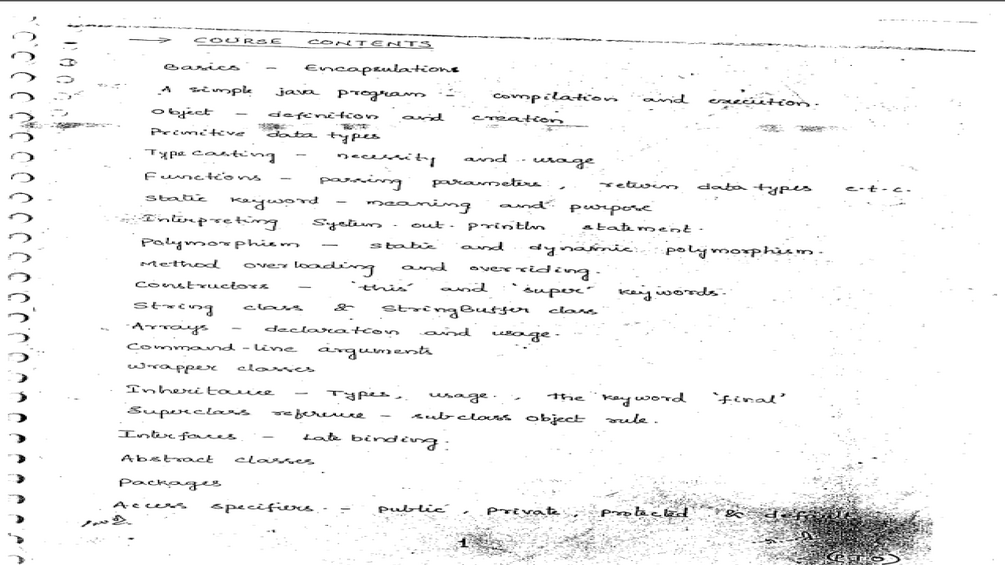 → COURSE CONTENTS
Basics - Encapsulations
A simple java program - compilation and execution.
Object - definition and creation
Primitive data types
Type casting - necessity and usage
Functions - passing parameters, return data types e.t.c.
Static keyword - meaning and purpose
Interpreting System.out.println statement.
Polymorphism - static and dynamic polymorphism.
Method overloading and overriding.
Constructors - 'this' and 'super' keywords.
String class & StringBuffer class
Arrays - declaration and usage.
Command-line arguments
Wrapper classes
Inheritance - Types, usage., the keyword 'final'
Superclass reference - subclass object rule.
Interfaces - Late binding.
Abstract classes
Packages
Access specifiers. - public, private, protected & default
1
(P.T.O)